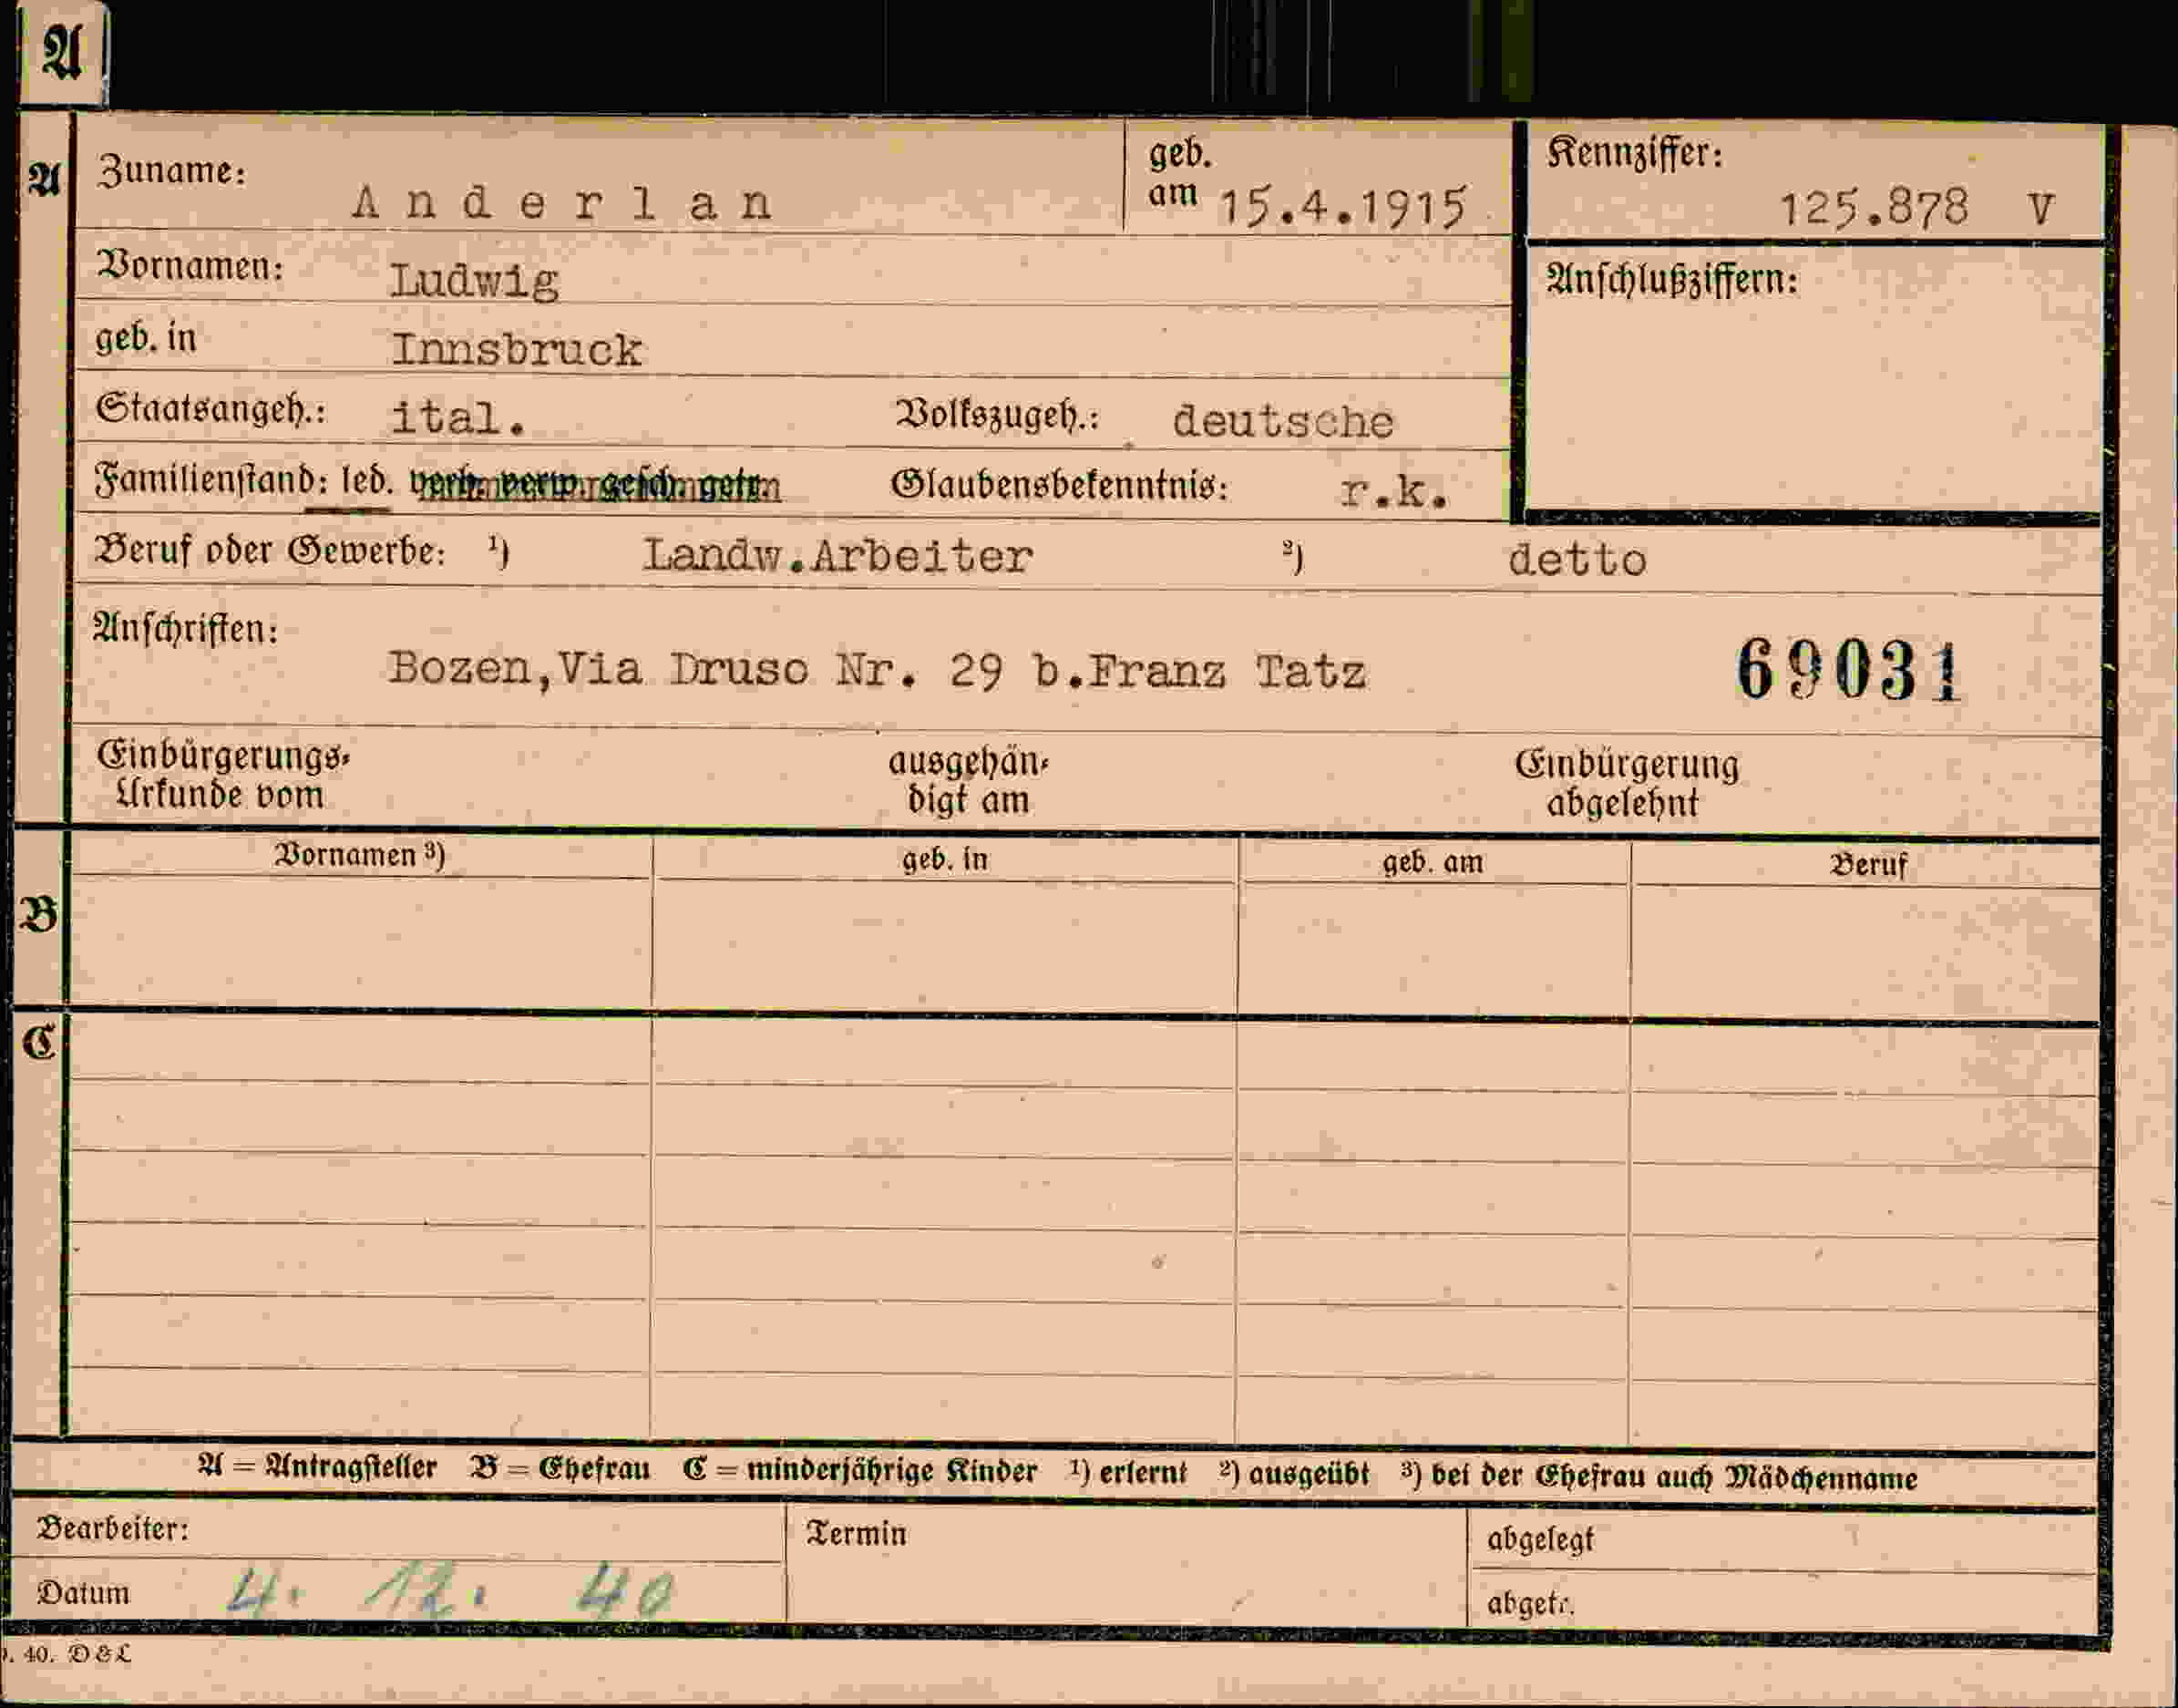 A
A
Zuname: Anderlan geb. am 15.4.1915 Kennziffer: 125.878 V
Vornamen: Ludwig Anschlußziffern:
geb. in Innsbruck
Staatsangeh.: ital. Volkszugeh.: deutsche
Familienstand: led. verh. verw. gesch. getr. Glaubensbekenntnis: r.k.
Beruf oder Gewerbe: ¹) Landw.Arbeiter ²) detto
Anschriften:
Bozen,Via Druso Nr. 29 b.Franz Tatz 69031
Einbürgerungs-Urkunde vom ausgehändigt am Einbürgerung abgelehnt
Vornamen ³) geb. in geb. am Beruf
B
C
A = Antragsteller B = Ehefrau C = minderjährige Kinder ¹) erlernt ²) ausgeübt ³) bei der Ehefrau auch Mädchenname
Bearbeiter: Termin abgelegt
Datum 4. 12. 40 abgetr.
40. D&L